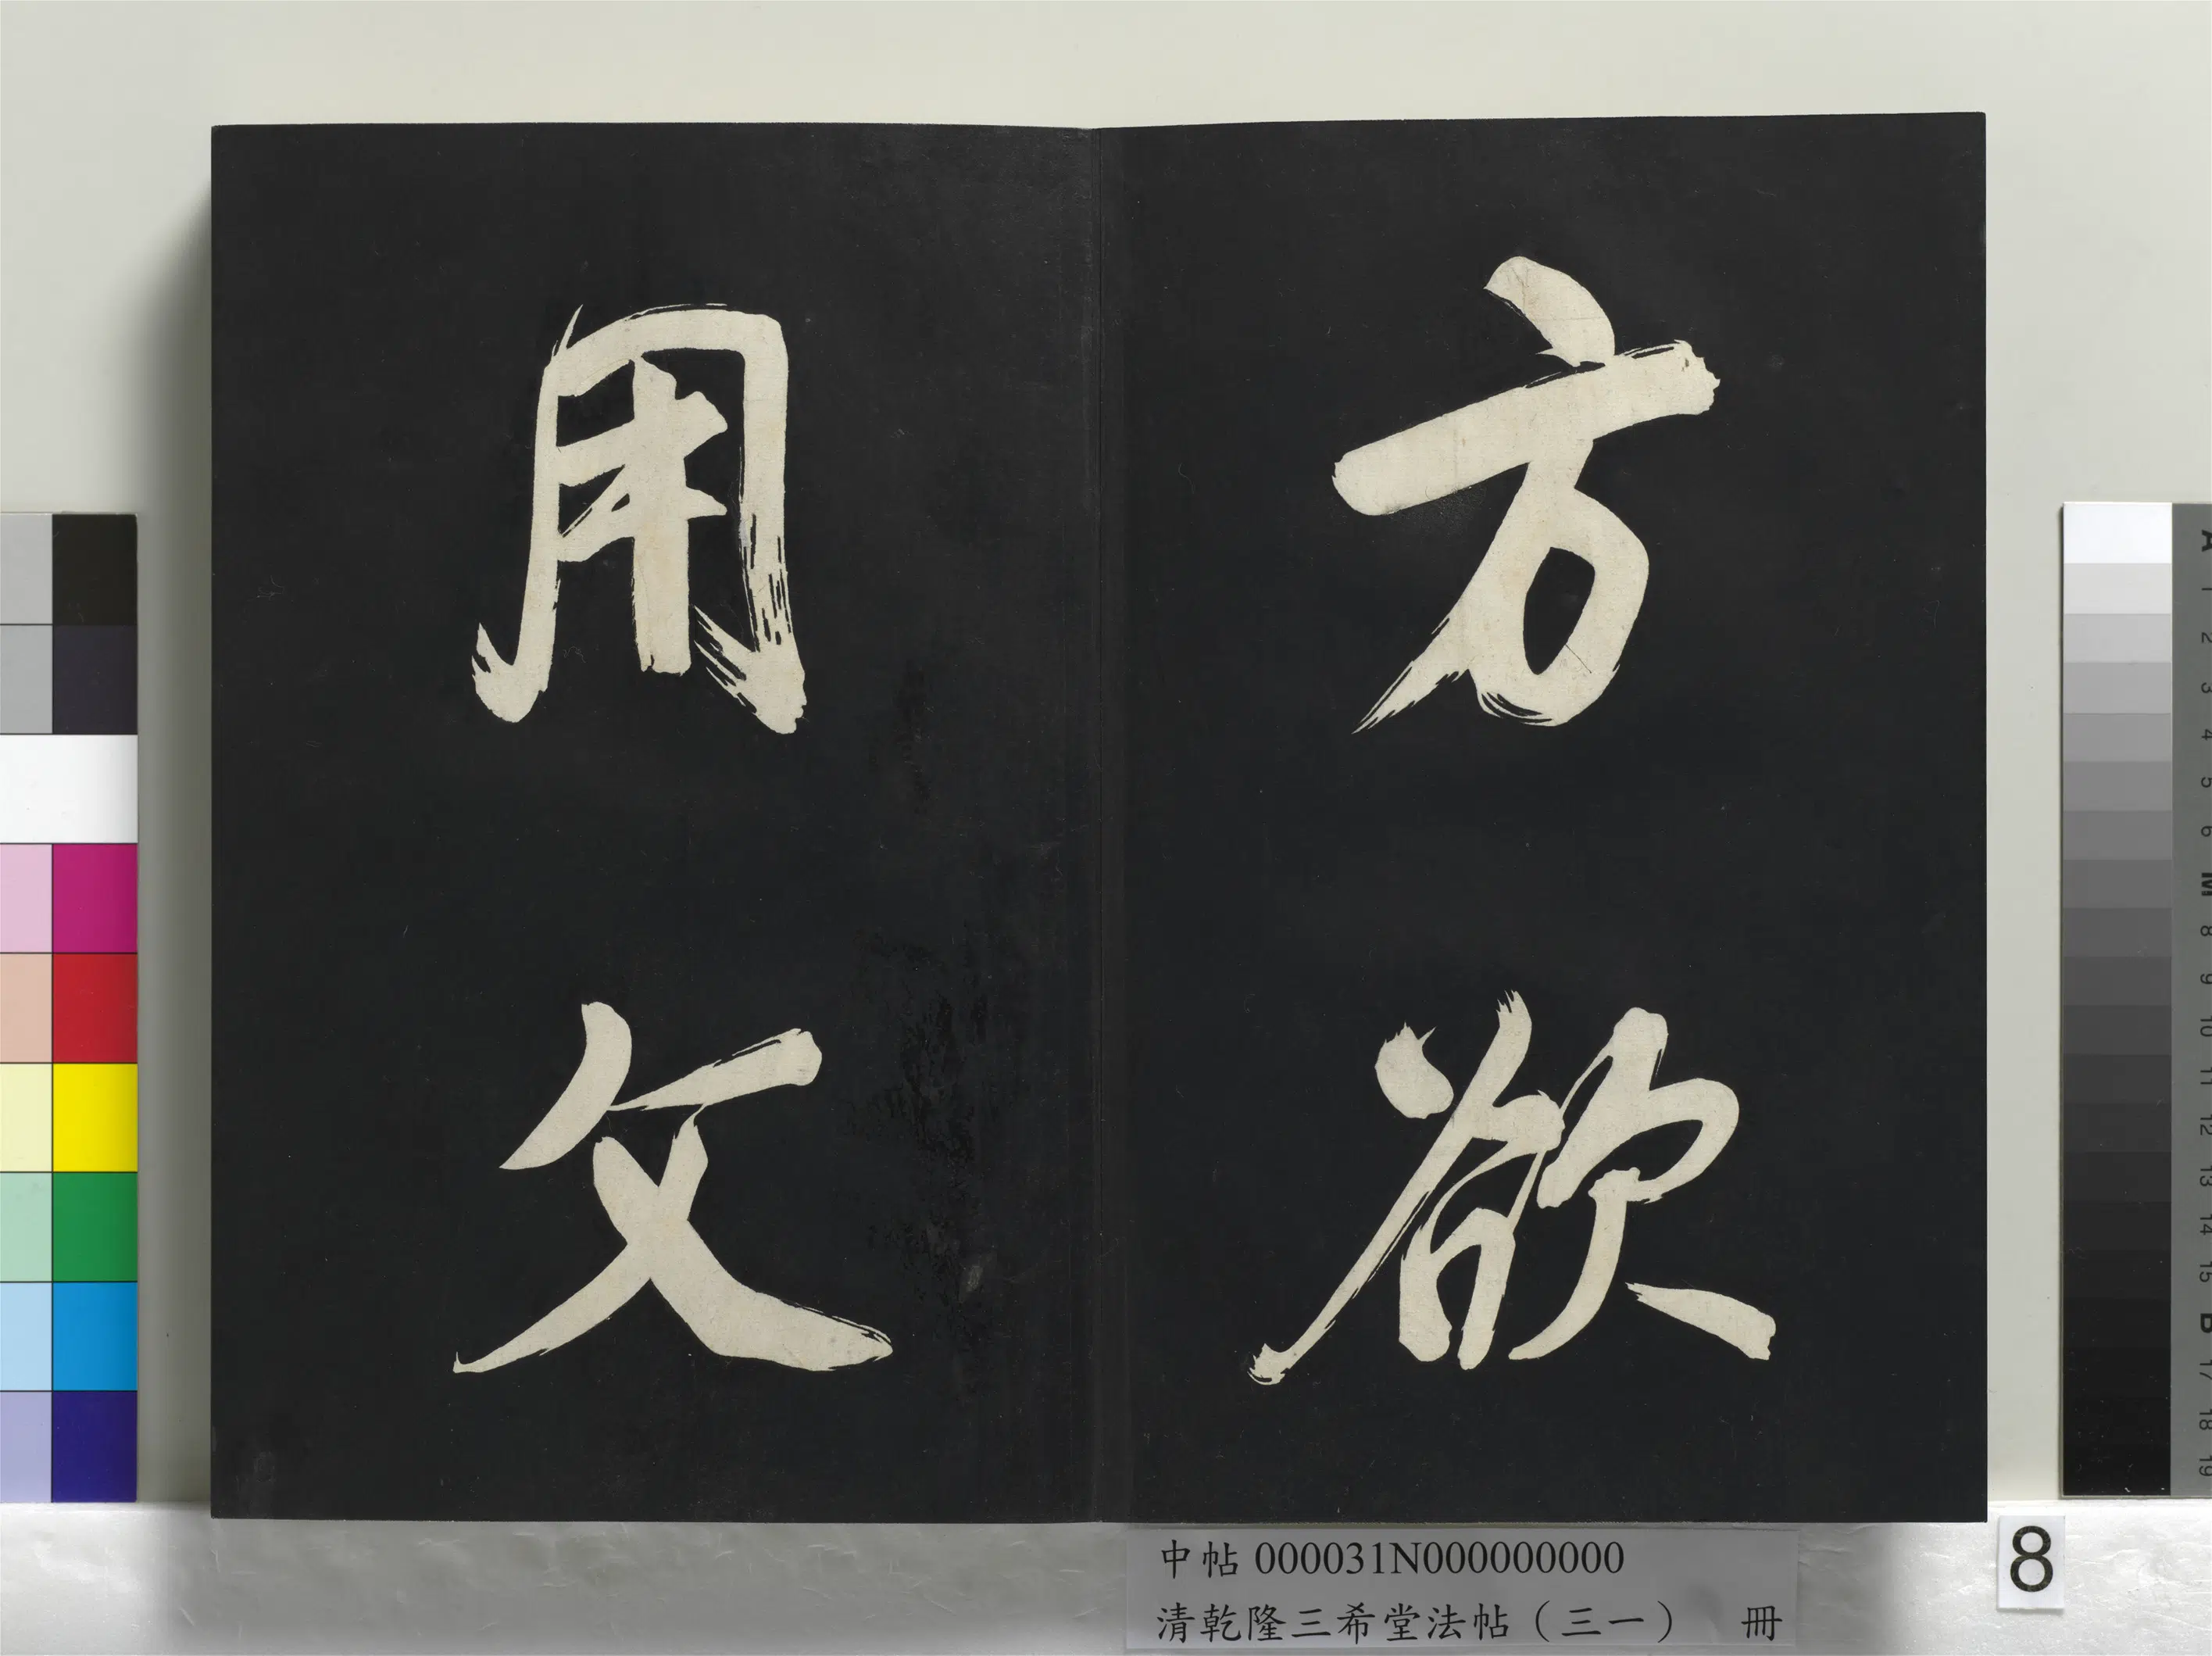 方欲
用文
中帖 000031N000000000
清乾隆三希堂法帖（三一） 冊
8
A
1
2
3
4
5
6
M
8
9
10
11
12
13
14
15
B
17
18
19